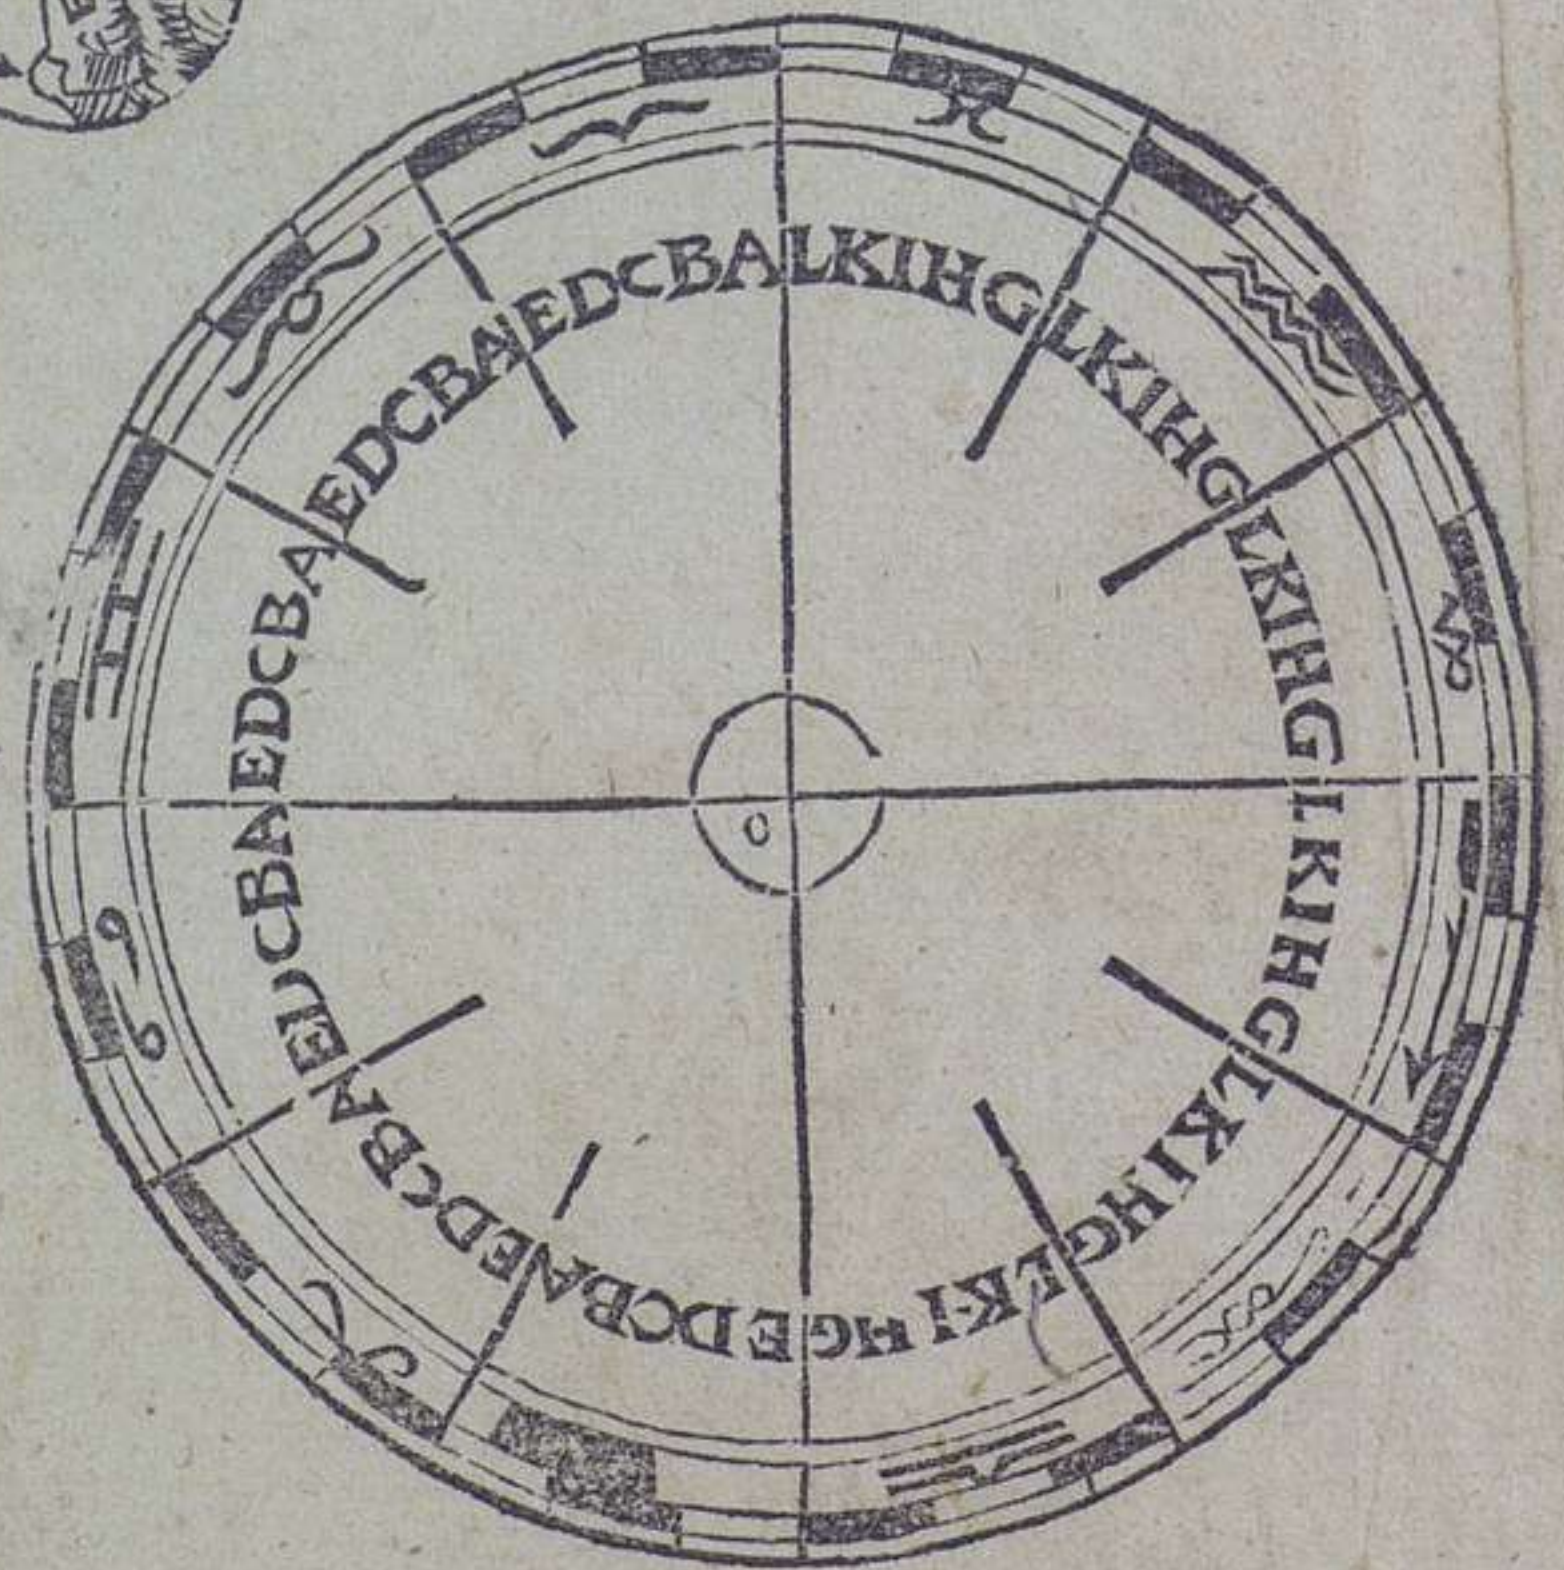 LKIHG
LKIHG
LKIHG
LKIHG
LKIHG
LKIHG
EDCBA
EDCBA
EDCBA
EDCBA
EDCBA
EDCBA
O